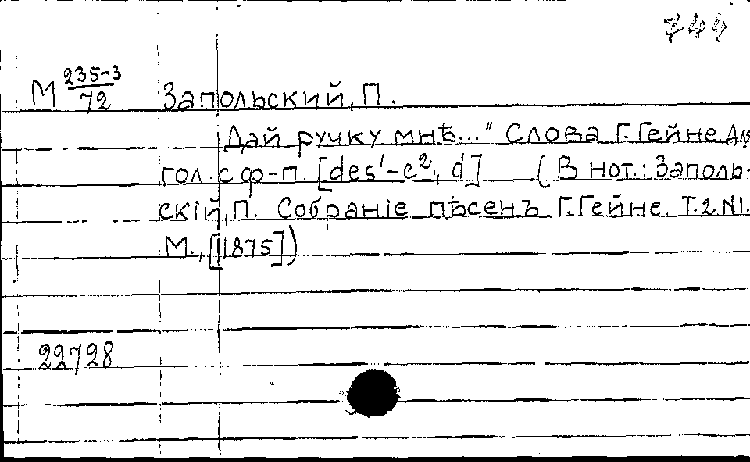 744
М 235-3/72 Запольский, П.
„Дай ручку мнѣ..." Слова Г. Гейне. Для
гол. с ф-п. [des¹-e², d] (В нот.: Заполь-
скій, П. Собраніе пѣсенъ Г. Гейне. Т.2. №1.
М., [1875])
22728